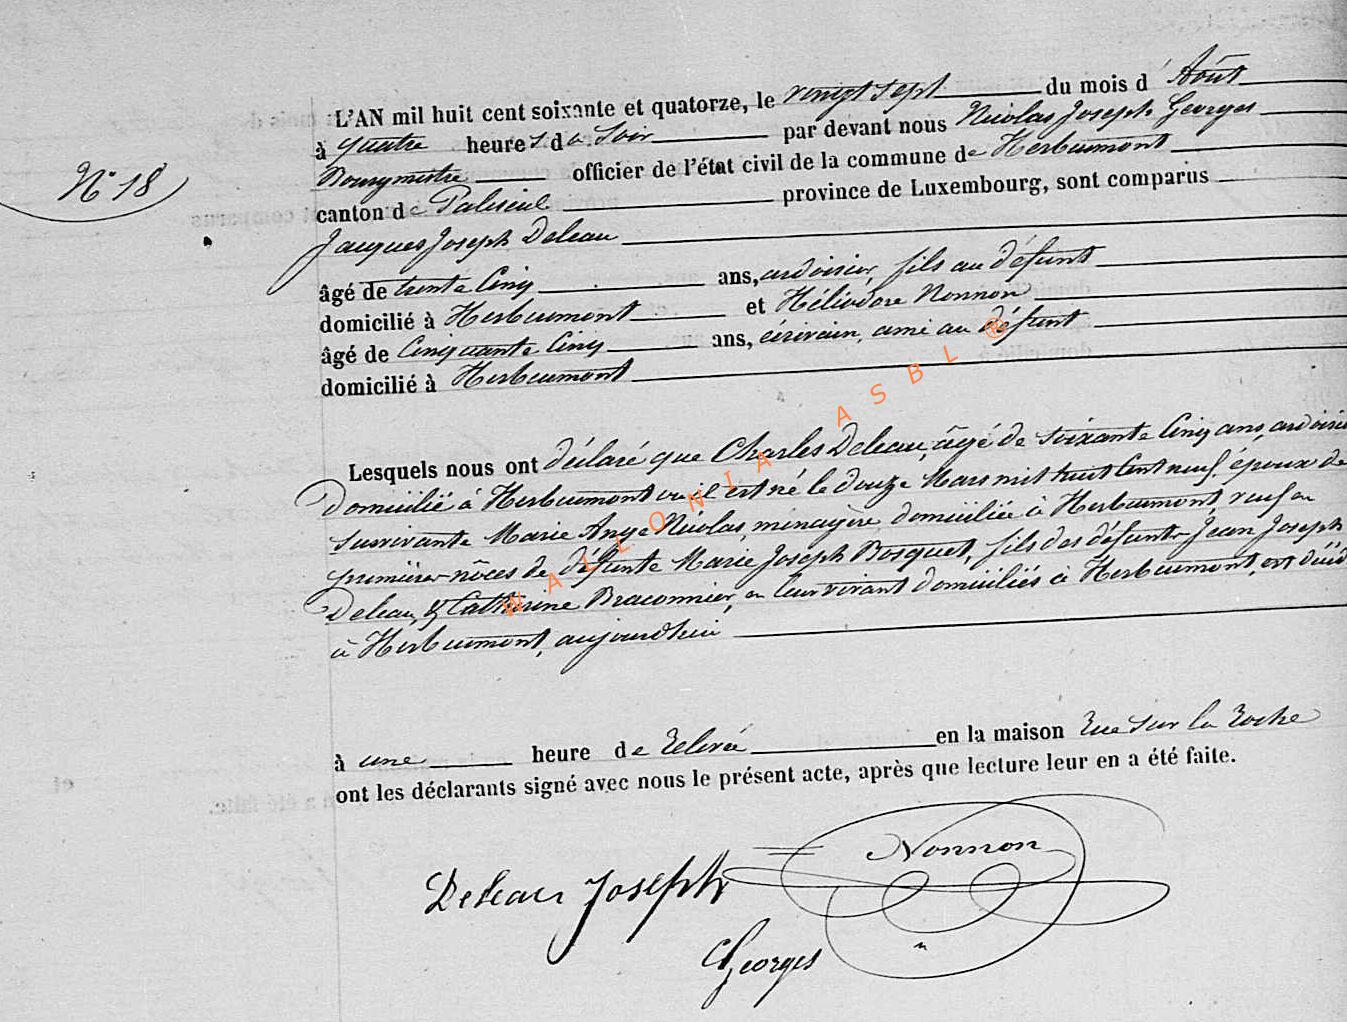 L'AN mil huit cent soixante et quatorze, le vingt sept du mois d'Août
à quatre heures du soir par devant nous Nicolas Joseph Georges
Bourgmestre officier de l'état civil de la commune de Herbeumont
N° 18
canton de Paliseul province de Luxembourg, sont comparus
Jacques Joseph Deleau
âgé de trente cinq ans, ardoisier, fils au défunt
domicilié à Herbeumont et Héliodore Nonnon
âgé de cinquante cinq ans, écrivain, ami au défunt
domicilié à Herbeumont
Lesquels nous ont déclaré que Charles Deleau, âgé de soixante cinq ans, ardoisie
domicilié à Herbeumont où il est né le douze Mars mil huit cent neuf, époux de
survivante Marie Ange Nicolas, ménagère, domiciliée à Herbeumont, veuf en
premières nôces de défunte Marie Joseph Bosquet, fils des défunts Jean Joseph
Deleau & Catherine Braconnier, en leur vivant domiciliés à Herbeumont, est décéd
à Herbeumont, aujourd'hui
à une heure de relevée en la maison rue sur la Roche
ont les déclarants signé avec nous le présent acte, après que lecture leur en a été faite.
Nonnon
Deleau Joseph
Georges
WALLONIA ASBL ®